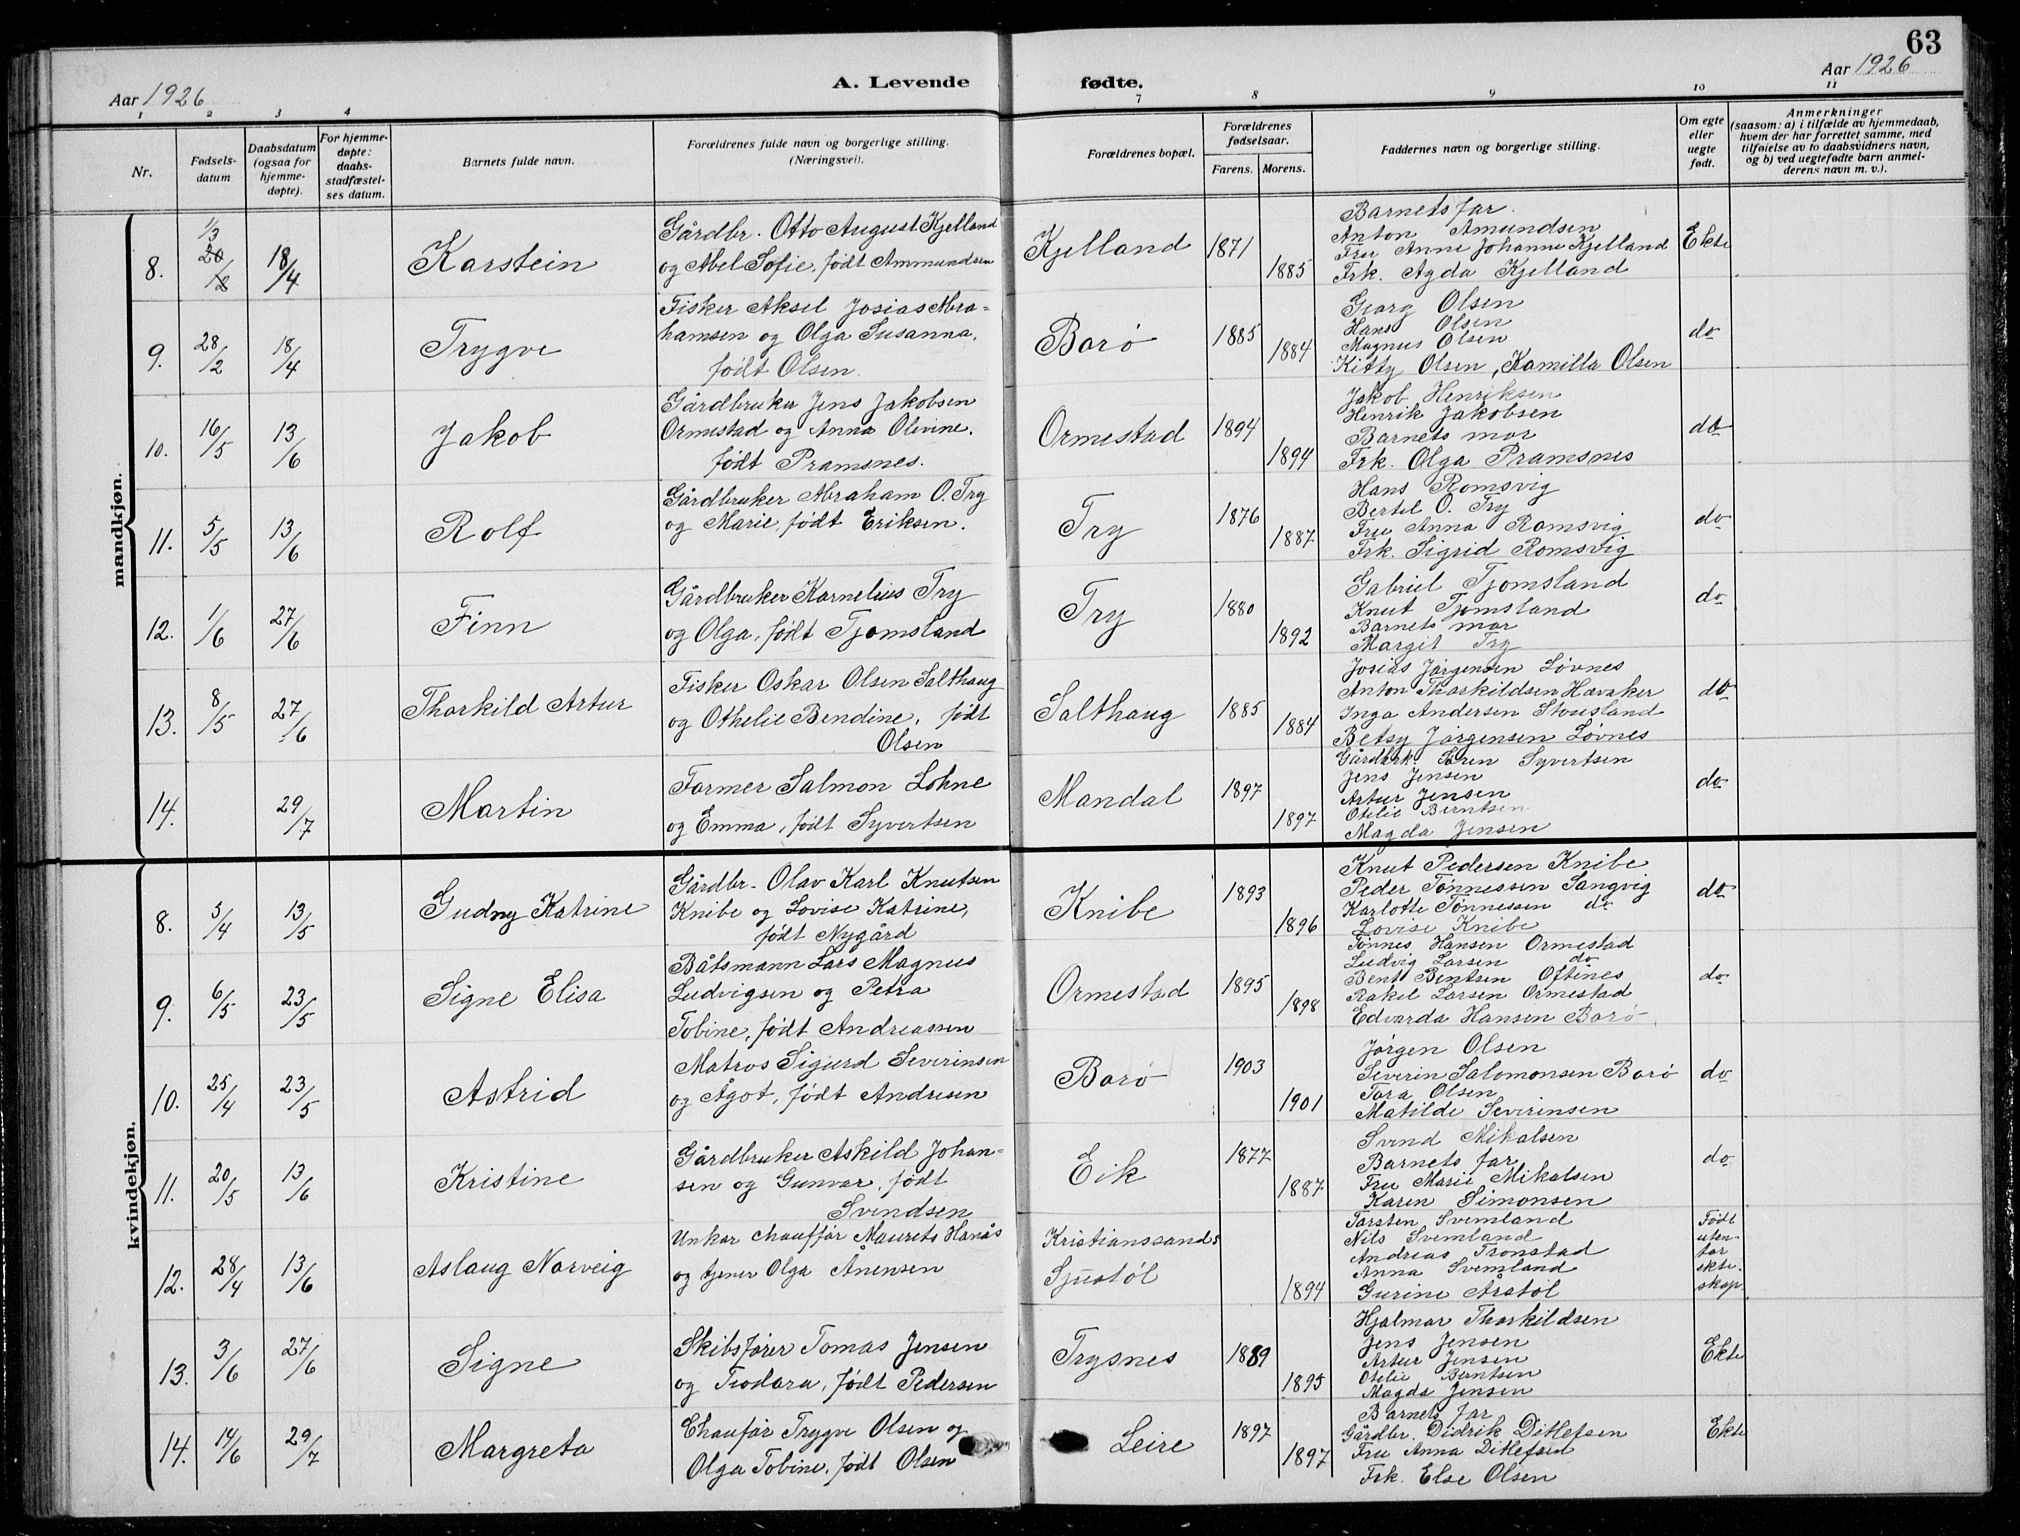 63
Aar 1926
A. Levende fødte.
Aar 1926
1 2 3 4 7 8 9 10 11
Nr.
Fødsels-
datum
Daabsdatum
(ogsaa for
hjemme-
døpte).
For hjemme-
døpte:
daabs-
stadfæstel-
ses datum.
Barnets fulde navn.
Forældrenes fulde navn og borgerlige stilling.
(Næringsvei).
Forældrenes bopæl.
Forældrenes
fødselsaar.
Farens. Morens.
Faddernes navn og borgerlige stilling.
Om egte
eller
uegte
født.
Anmerkninger
(saasom: a) i tilfælde av hjemmedaab,
hvem der har forrettet samme, med
tilføielse av to daabsvidners navn,
og b) ved uegtefødte barn anmel-
derens navn m. v.).
mandkjøn.
8. 1/3 20/12 18/4
Karstein
Gårdbr. Otto August Kjelland
og Abel Sofie, født Ammundsen
Kjelland
1871
1885
Barnets far.
Anton Amundsen
Fru Anne Johanne Kjelland
Frk. Agda Kjelland
Ekte
9. 28/2 18/4
Trygve
Fisker Aksel Josias Abra-
hamsen og Olga Susanna,
født Olsen.
Borø
1885
1884
Georg Olsen
Hans Olsen
Magnus Olsen
Kitty Olsen, Kamilla Olsen
do
10. 16/5 13/6
Jakob
Gårdbruker Jens Jakobsen
Ormestad og Anna Olivine.
født Pramsnes.
Ormestad
1894
1894
Jakob Henriksen
Henrik Jakobsen
Barnets mor
Frk. Olga Pramsnes
do
11. 5/5 13/6
Rolf
Gårdbruker Abraham O. Try
og Marie, født Eriksen.
Try
1876
1887
Hans Romsvig
Bertel O. Try
Fru Anna Romsvig
Frk. Sigrid Romsvig
do
12. 1/6 27/6
Finn
Gårdbruker Kornelius Try
og Olga, født Tjomsland
Try
1880
1892
Gabriel Tjomsland
Knut Tjomsland
Barnets mor
Margit Try
do
13. 8/5 27/6
Thorkild Artur
Fisker Oskar Olsen Salthaug
og Othelie Bendine, født
Olsen
Salthaug
1885
1884
Josias Jørgensen Løvnes
Anton Thorkildsen Havaker
Inga Andersen Stousland
Betsy Jørgensen Løvnes
do
14. 29/7
Martin
Farmer Salmon Lohne
og Emma, født Syvertsen
Mandal
1897
1897
Gårdbrk. Søren Syvertsen
Jens Jensen
Artur Jensen
Otelie Berntsen
Magda Jensen
do
kvindekjøn.
8. 5/4 13/5
Gudny Katrine
Gårdbr. Olav Karl Knutsen
Knibe og Lovise Katrine,
født Nygård
Knibe
1893
1896
Knut Pedersen Knibe
Peder Tønnessen Sangvig
Karlotte Tønnessen do
Lovise Knibe
do
9. 6/5 23/5
Signe Elisa
Båtsmann Lars Magnus
Ludvigsen og Petra
Tobine, født Andreassen
Ormestad
1895
1898
Tønnes Hansen Ormestad
Ludvig Larsen do
Bent Bentsen Oftines
Rakel Larsen Ormestad
Edvarda Hansen Borø
do
10. 25/4 23/5
Astrid
Matros Sigurd Severinsen
og Ågot, født Andresen
Borø
1903
1901
Jørgen Olsen
Severin Salomonsen Borø
Tora Olsen
Matilde Severinsen
do
11. 20/5 13/6
Kristine
Gårdbruker Askild Johan-
sen og Gunvor, født
Svendsen
Eik
1877
1887
Svend Mikalsen
Barnets far
Fru Marie Mikalsen
Karen Simonsen
do
12. 28/4 13/6
Aslaug Norveig
Unkar chauffør Maurets Hanås
og tjener Olga Ånensen
Kristianssands
Sjustøl
1894
Torsten Svemland
Nils Svemland
Andreas Tronstad
Anna Svemland
Gurine Årstøl
Født
uten-
for
ekte-
skap
13. 3/6 27/6
Signe
Skibsfører Tomas Jensen
og Teodora, født Pedersen
Trysnes
1889
1895
Hjalmar Thorkildsen
Jens Jensen
Artur Jensen
Otelie Berntsen
Magda Jensen
Ekte
14. 14/6 29/7
Margreta
Chaufør Trygve Olsen og
Olga Tobine, født Olsen
Leire
1897
1897
Barnets far
Gårdbr. Didrik Ditlefsen
Fru Anna Ditlefsen
Frk. Else Olsen
Ekte